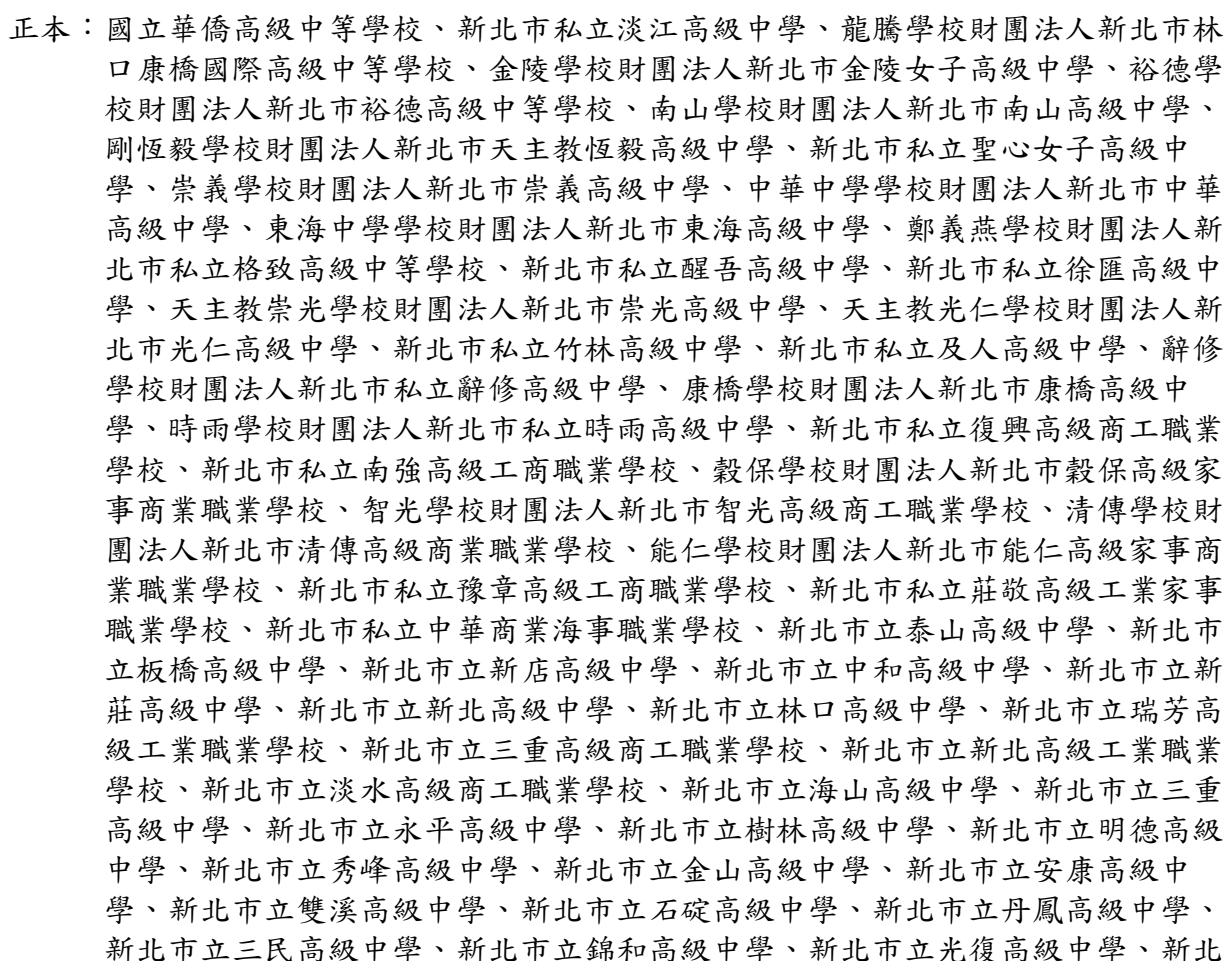 正本：國立華僑高級中等學校、新北市私立淡江高級中學、龍騰學校財團法人新北市林
口康橋國際高級中等學校、金陵學校財團法人新北市金陵女子高級中學、裕德學
校財團法人新北市裕德高級中等學校、南山學校財團法人新北市南山高級中學、
剛恆毅學校財團法人新北市天主教恆毅高級中學、新北市私立聖心女子高級中
學、崇義學校財團法人新北市崇義高級中學、中華中學學校財團法人新北市中華
高級中學、東海中學學校財團法人新北市東海高級中學、鄭義燕學校財團法人新
北市私立格致高級中等學校、新北市私立醒吾高級中學、新北市私立徐匯高級中
學、天主教崇光學校財團法人新北市崇光高級中學、天主教光仁學校財團法人新
北市光仁高級中學、新北市私立竹林高級中學、新北市私立及人高級中學、辭修
學校財團法人新北市私立辭修高級中學、康橋學校財團法人新北市康橋高級中
學、時雨學校財團法人新北市私立時雨高級中學、新北市私立復興高級商工職業
學校、新北市私立南強高級工商職業學校、穀保學校財團法人新北市穀保高級家
事商業職業學校、智光學校財團法人新北市智光高級商工職業學校、清傳學校財
團法人新北市清傳高級商業職業學校、能仁學校財團法人新北市能仁高級家事商
業職業學校、新北市私立豫章高級工商職業學校、新北市私立莊敬高級工業家事
職業學校、新北市私立中華商業海事職業學校、新北市立泰山高級中學、新北市
立板橋高級中學、新北市立新店高級中學、新北市立中和高級中學、新北市立新
莊高級中學、新北市立新北高級中學、新北市立林口高級中學、新北市立瑞芳高
級工業職業學校、新北市立三重高級商工職業學校、新北市立新北高級工業職業
學校、新北市立淡水高級商工職業學校、新北市立海山高級中學、新北市立三重
高級中學、新北市立永平高級中學、新北市立樹林高級中學、新北市立明德高級
中學、新北市立秀峰高級中學、新北市立金山高級中學、新北市立安康高級中
學、新北市立雙溪高級中學、新北市立石碇高級中學、新北市立丹鳳高級中學、
新北市立三民高級中學、新北市立錦和高級中學、新北市立光復高級中學、新北